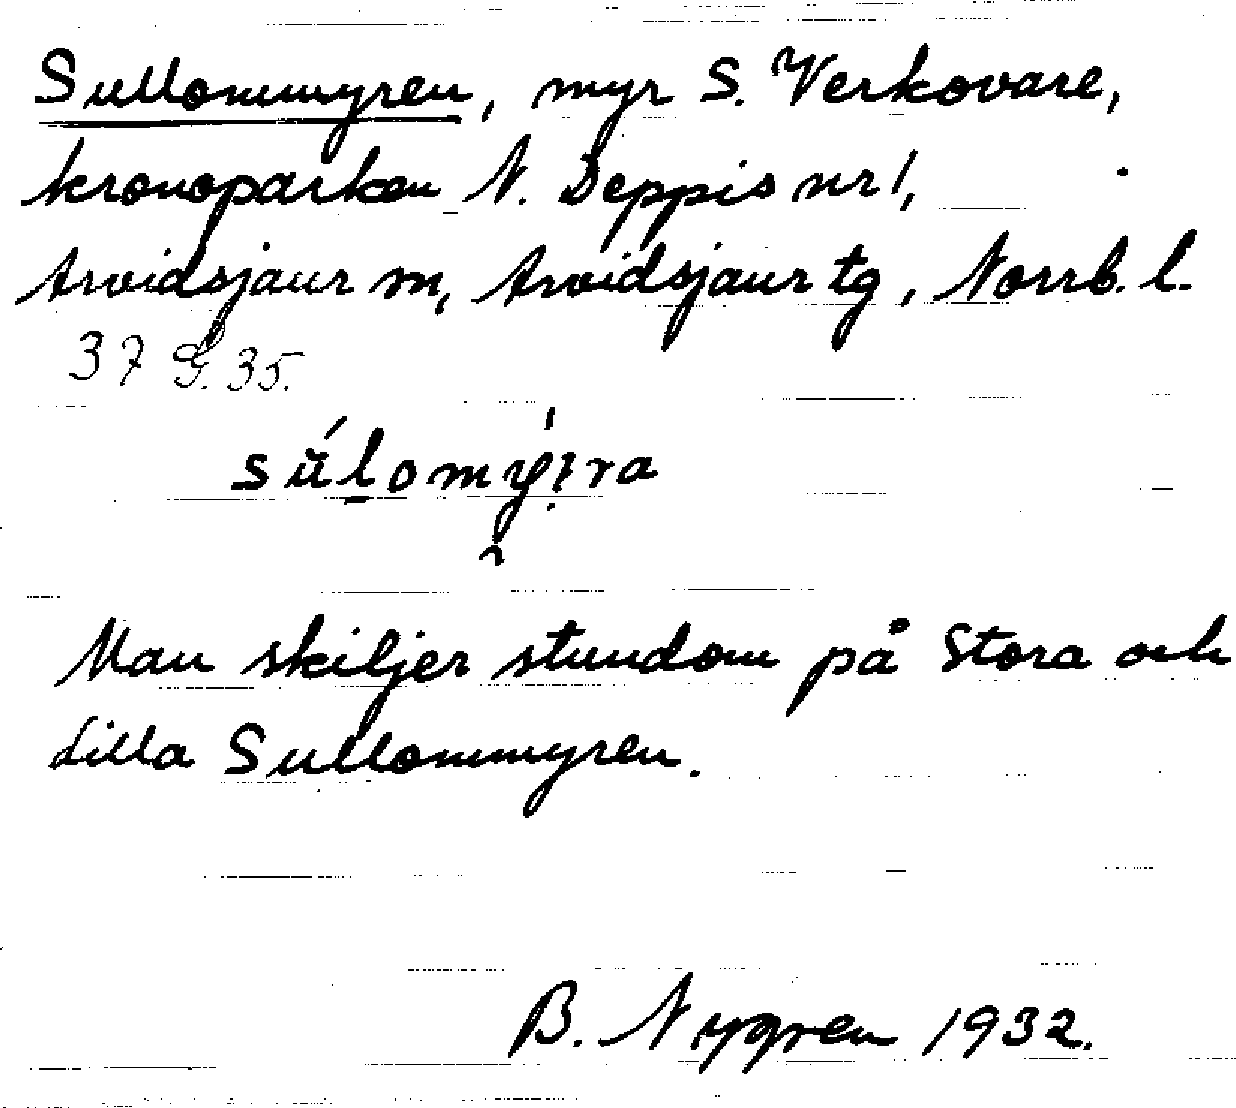 Sullommyren, myr S. Verkovare,
kronoparken N. Deppis nr 1,
Arvidsjaur sn, Arvidsjaur tg, Norrb. l.
37 G. 35.
Man skiljer stundom på Stora och
Lilla Sullommyren.
B. Nygren 1932.